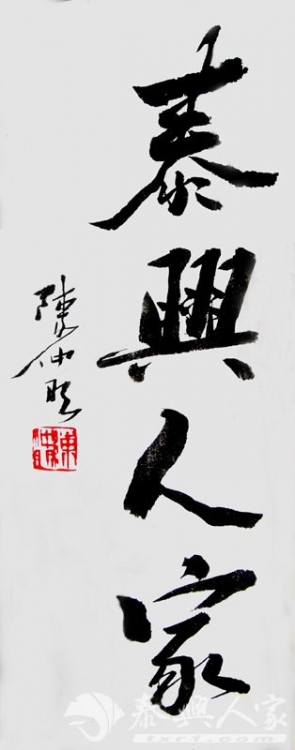 泰興人家
陳仲明
泰興人家
txr1.com